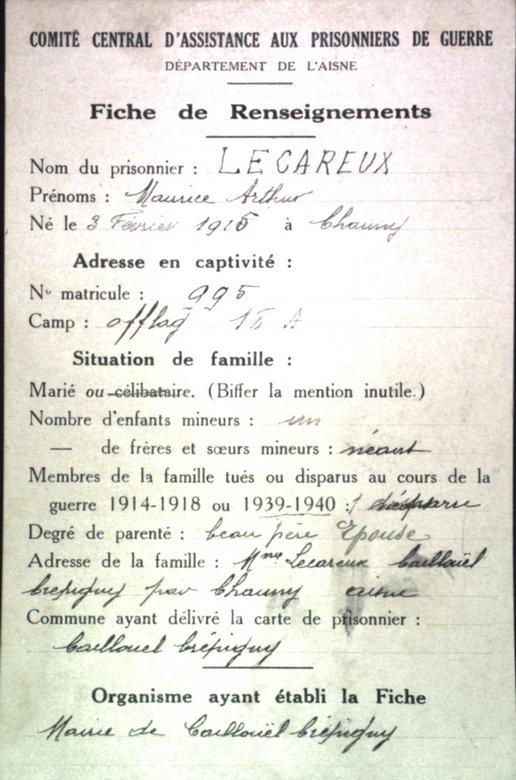 COMITÉ CENTRAL D'ASSISTANCE AUX PRISONNIERS DE GUERRE
DÉPARTEMENT DE L'AISNE
Fiche de Renseignements
Nom du prisonnier : LECAREUX
Prénoms : Maurice Arthur
Né le 3 Février 1915 à Chauny
Adresse en captivité :
No matricule : 995
Camp : offlag A
Situation de famille :
Marié ou célibataire. (Biffer la mention inutile.)
Nombre d'enfants mineurs : un
— de frères et sœurs mineurs : néant
Membres de la famille tués ou disparus au cours de la
guerre 1914-1918 ou 1939-1940 : 1 disparu
Degré de parenté : beau père Epouse
Adresse de la famille : Mme Lecareux Caillouël
Crépigny par Chauny aisne
Commune ayant délivré la carte de prisonnier :
Caillouel Crépigny
Organisme ayant établi la Fiche
Mairie de Caillouël Crépigny